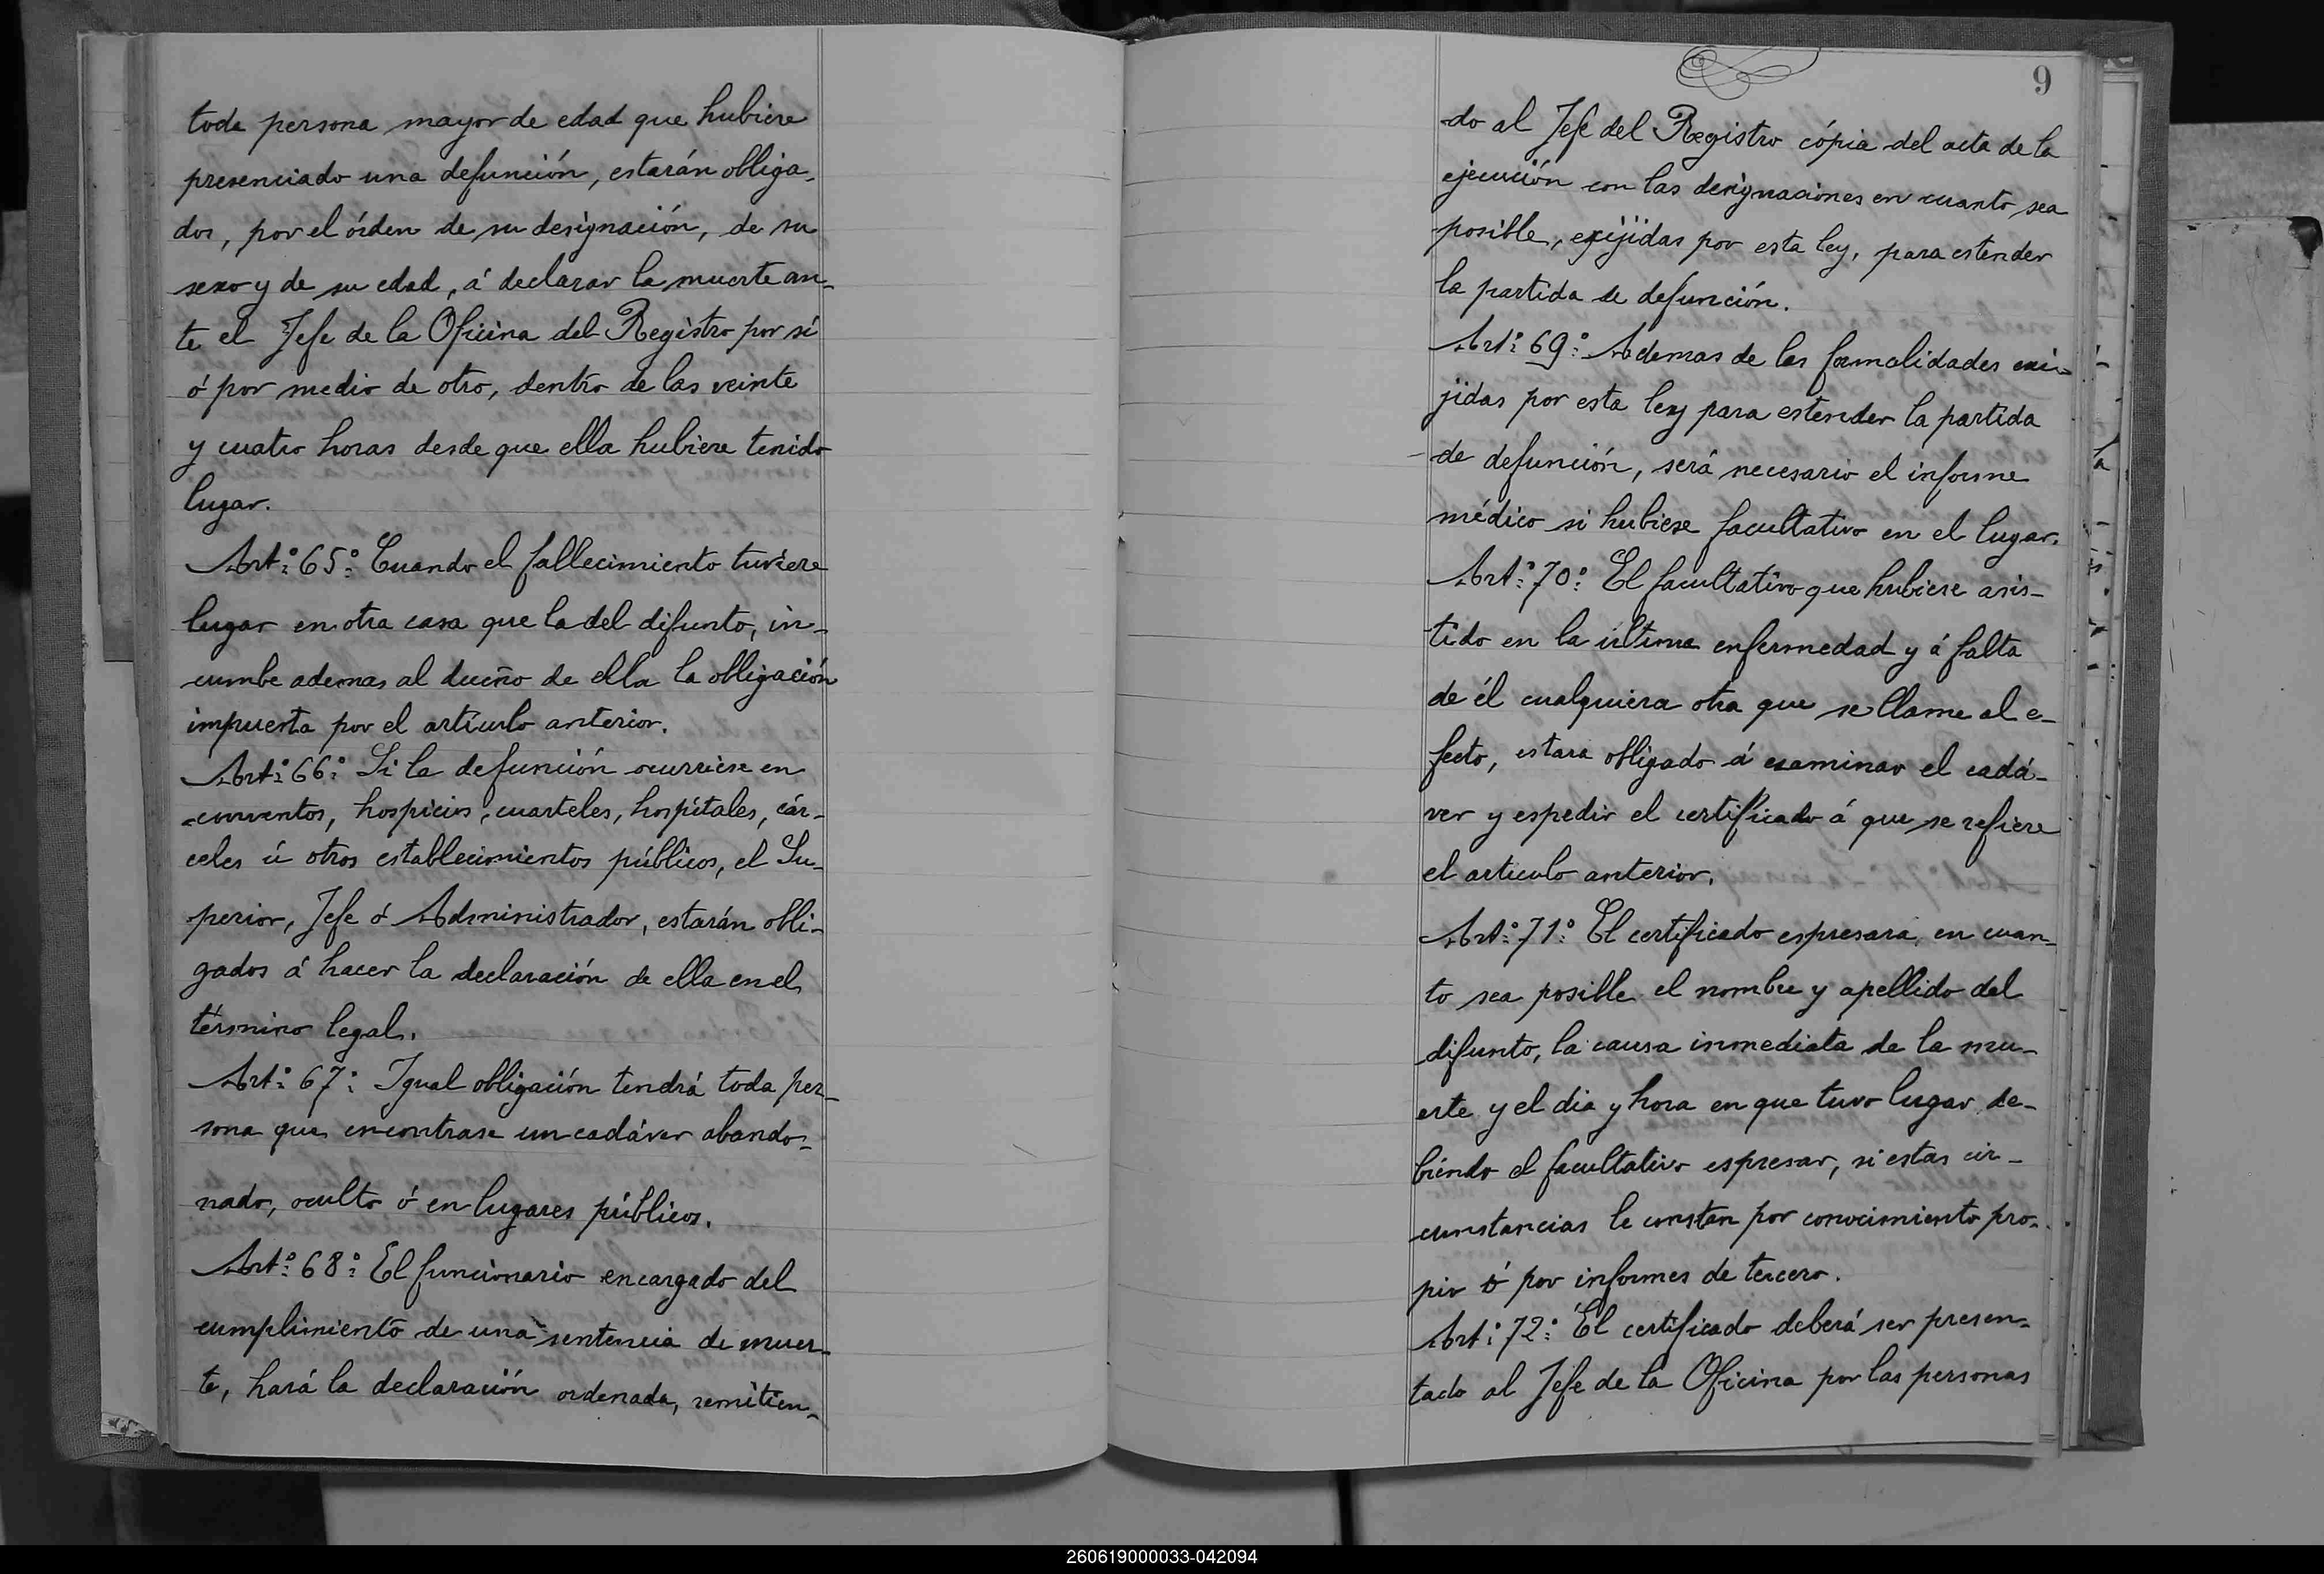 toda persona mayor de edad que hubiere
presenciado una defunción, estarán obliga-
dos, por el órden de su designación, de su
sexo y de su edad, á declarar la muerte an-
te el Jefe de la Oficina del Registro por si
ó por medio de otro, dentro de las veinte
y cuatro horas desde que ella hubiere tenido
lugar.
Art.º 65.º Cuando el fallecimiento tuviere
lugar en otra casa que la del difunto, in-
cumbe ademas al dueño de ella la obligación
impuesta por el artículo anterior.
Art.º 66.º Si la defunción ocurriese en
conventos, hospicios, cuarteles, hospitales, cár-
celes ú otros establecimientos públicos, el Su-
perior, Jefe ó Administrador, estarán obli-
gados á hacer la declaración de ella en el
término legal.
Art.º 67.º Igual obligación tendrá toda per-
sona que encontrase un cadáver abando-
nado, oculto ó en lugares públicos.
Art.º 68.º El funcionario encargado del
cumplimiento de una sentencia de muer-
te, hará la declaración ordenada, remitien-
9
do al Jefe del Registro cópia del acta de la
ejecución con las designaciones en cuanto sea
posible, exijidas por esta ley, para estender
la partida de defunción.
Art.º 69.º Ademas de las formalidades exi-
jidas por esta ley para estender la partida
de defunción, será necesario el informe
médico si hubiese facultativo en el lugar.
Art.º 70.º El facultativo que hubiere asis-
tido en la última enfermedad y á falta
de él cualquiera otra que se llame al e-
fecto, estara obligado á examinar el cadá-
ver y espedir el certificado á que se refiere
el articulo anterior.
Art.º 71.º El certificado espresara, en cuan-
to sea posible el nombre y apellido del
difunto, la causa inmediata de la mu-
erte y el dia y hora en que tuvo lugar de-
biendo el facultativo espresar, si estas cir-
cunstancias le constan por conocimiento pro-
pio ó por informes de tercero.
Art.º 72.º El certificado deberá ser presen-
tado al Jefe de la Oficina por las personas
260619000033-042094